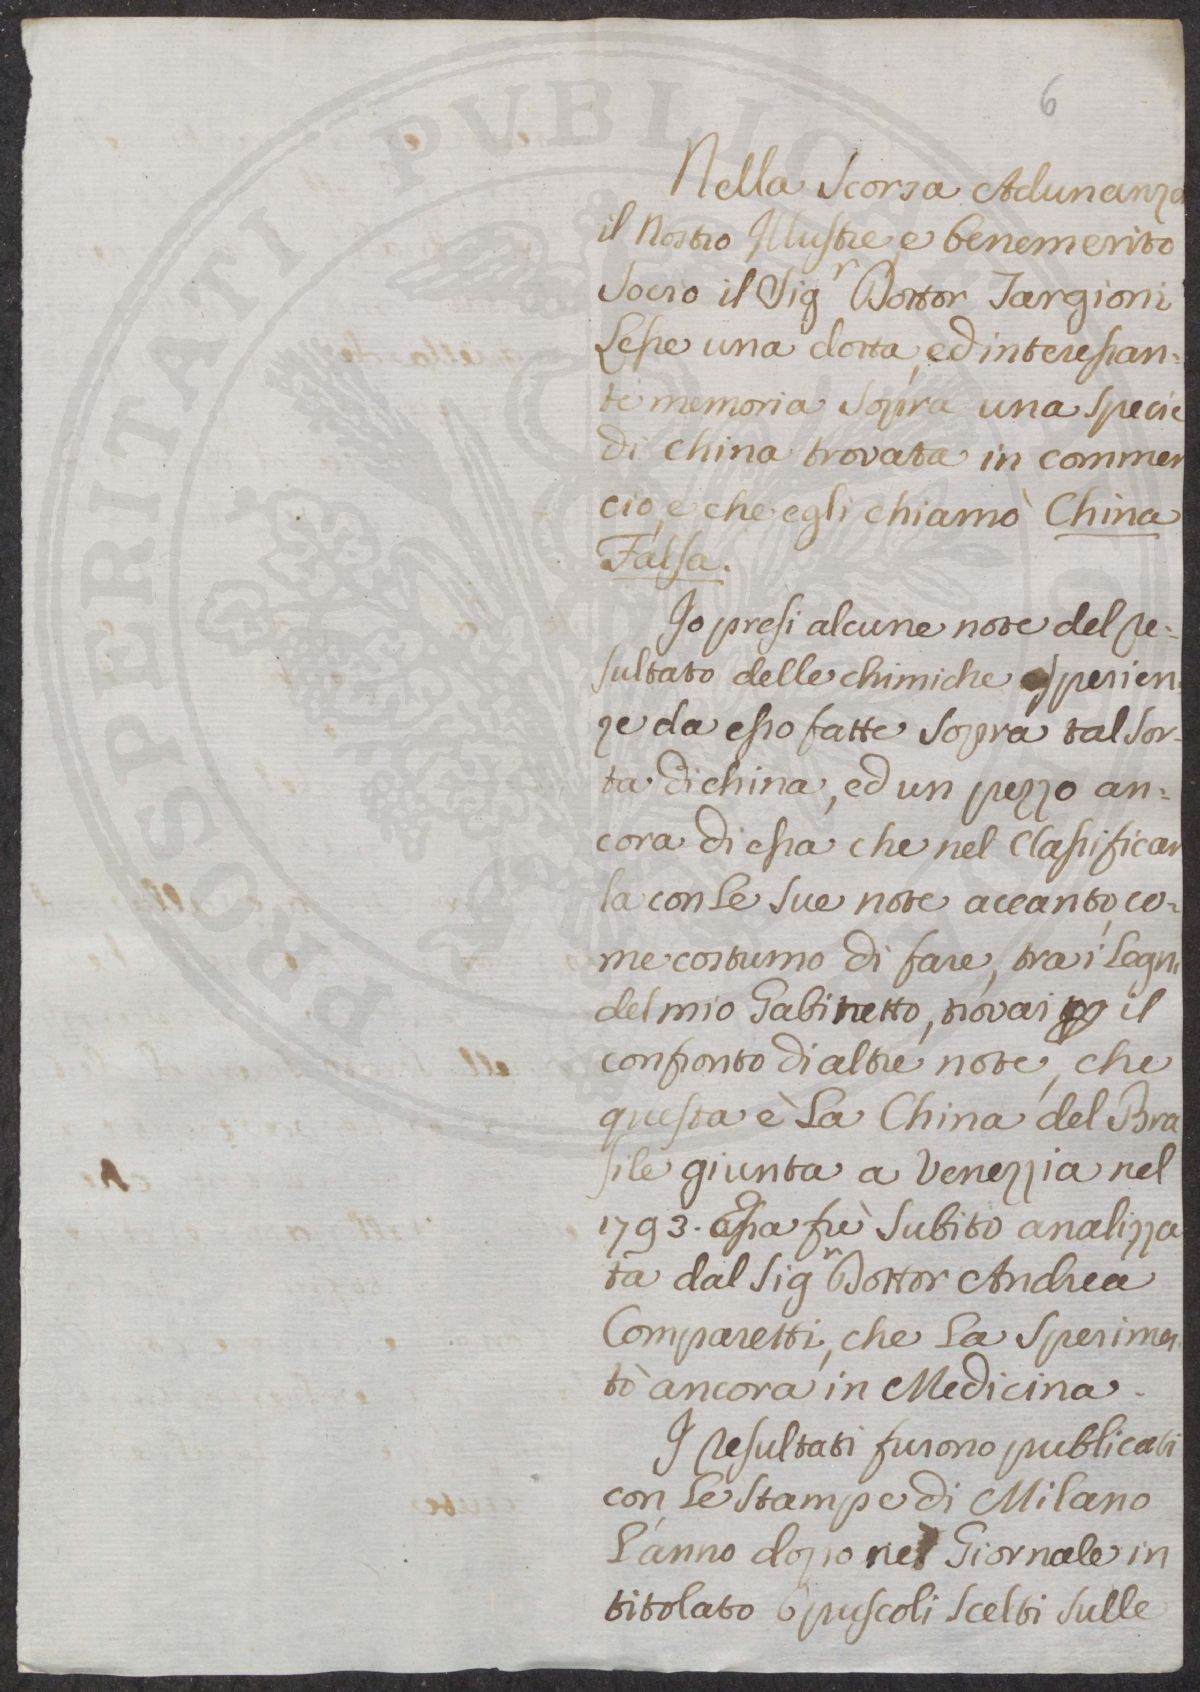 6
Nella Scorsa Adunanza
il Nostro Illustre, e benemerito
Socio il Sig.r Dottor Targioni
Lesse una dotta, ed interessan=
te memoria Sopra una Specie
di China trovata in commer
cio, e che egli chiamò China
Falsa.
Io presi alcune note del re=
sultato delle chimiche esperien
ze da esso fatte Sopra tal Sor=
ta di china, ed un pezzo an=
cora di essa che nel Classificar
la con Le Sue note accanto, co=
me costumo di fare, tra i Legni
del mio Gabinetto, trovai il
confronto di altre note, che
questa è La China del Bra
sile giunta a Venezzia nel
1793. Essa fù Subito analizza
ta dal Sig.r Dottor Andrea
Comparetti, che La Sperimen
tò ancora in Medicina.
I resultati furono publicati
con Le Stampe di Milano
L'anno dopo nel Giornale in
titolato Opuscoli Scelti Sulle
PROSPERITATI PUBLICAE